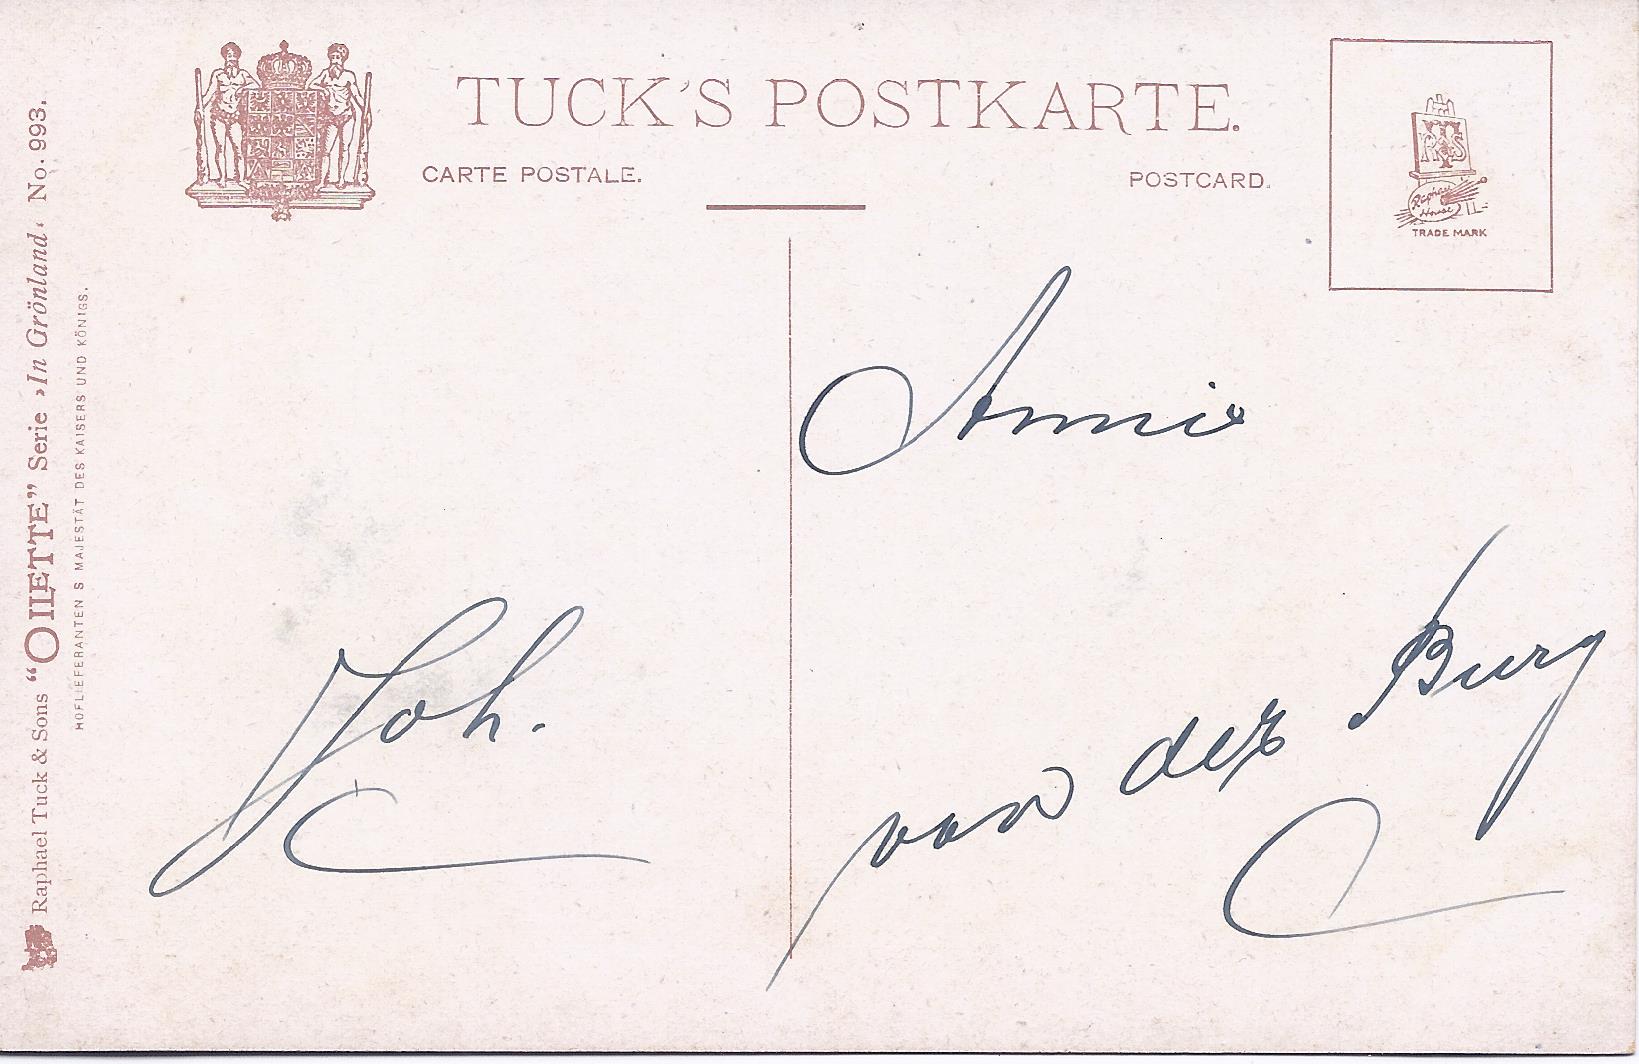 TUCK'S POSTKARTE.
CARTE POSTALE.
POSTCARD.
RTS
Raphael House
TRADE MARK
Raphael Tuck & Sons “OILETTE” Serie ›In Grönland‹ No. 993.
HOFLIEFERANTEN S MAJESTÄT DES KAISERS UND KÖNIGS.
Joh.
Annie
van der Burg